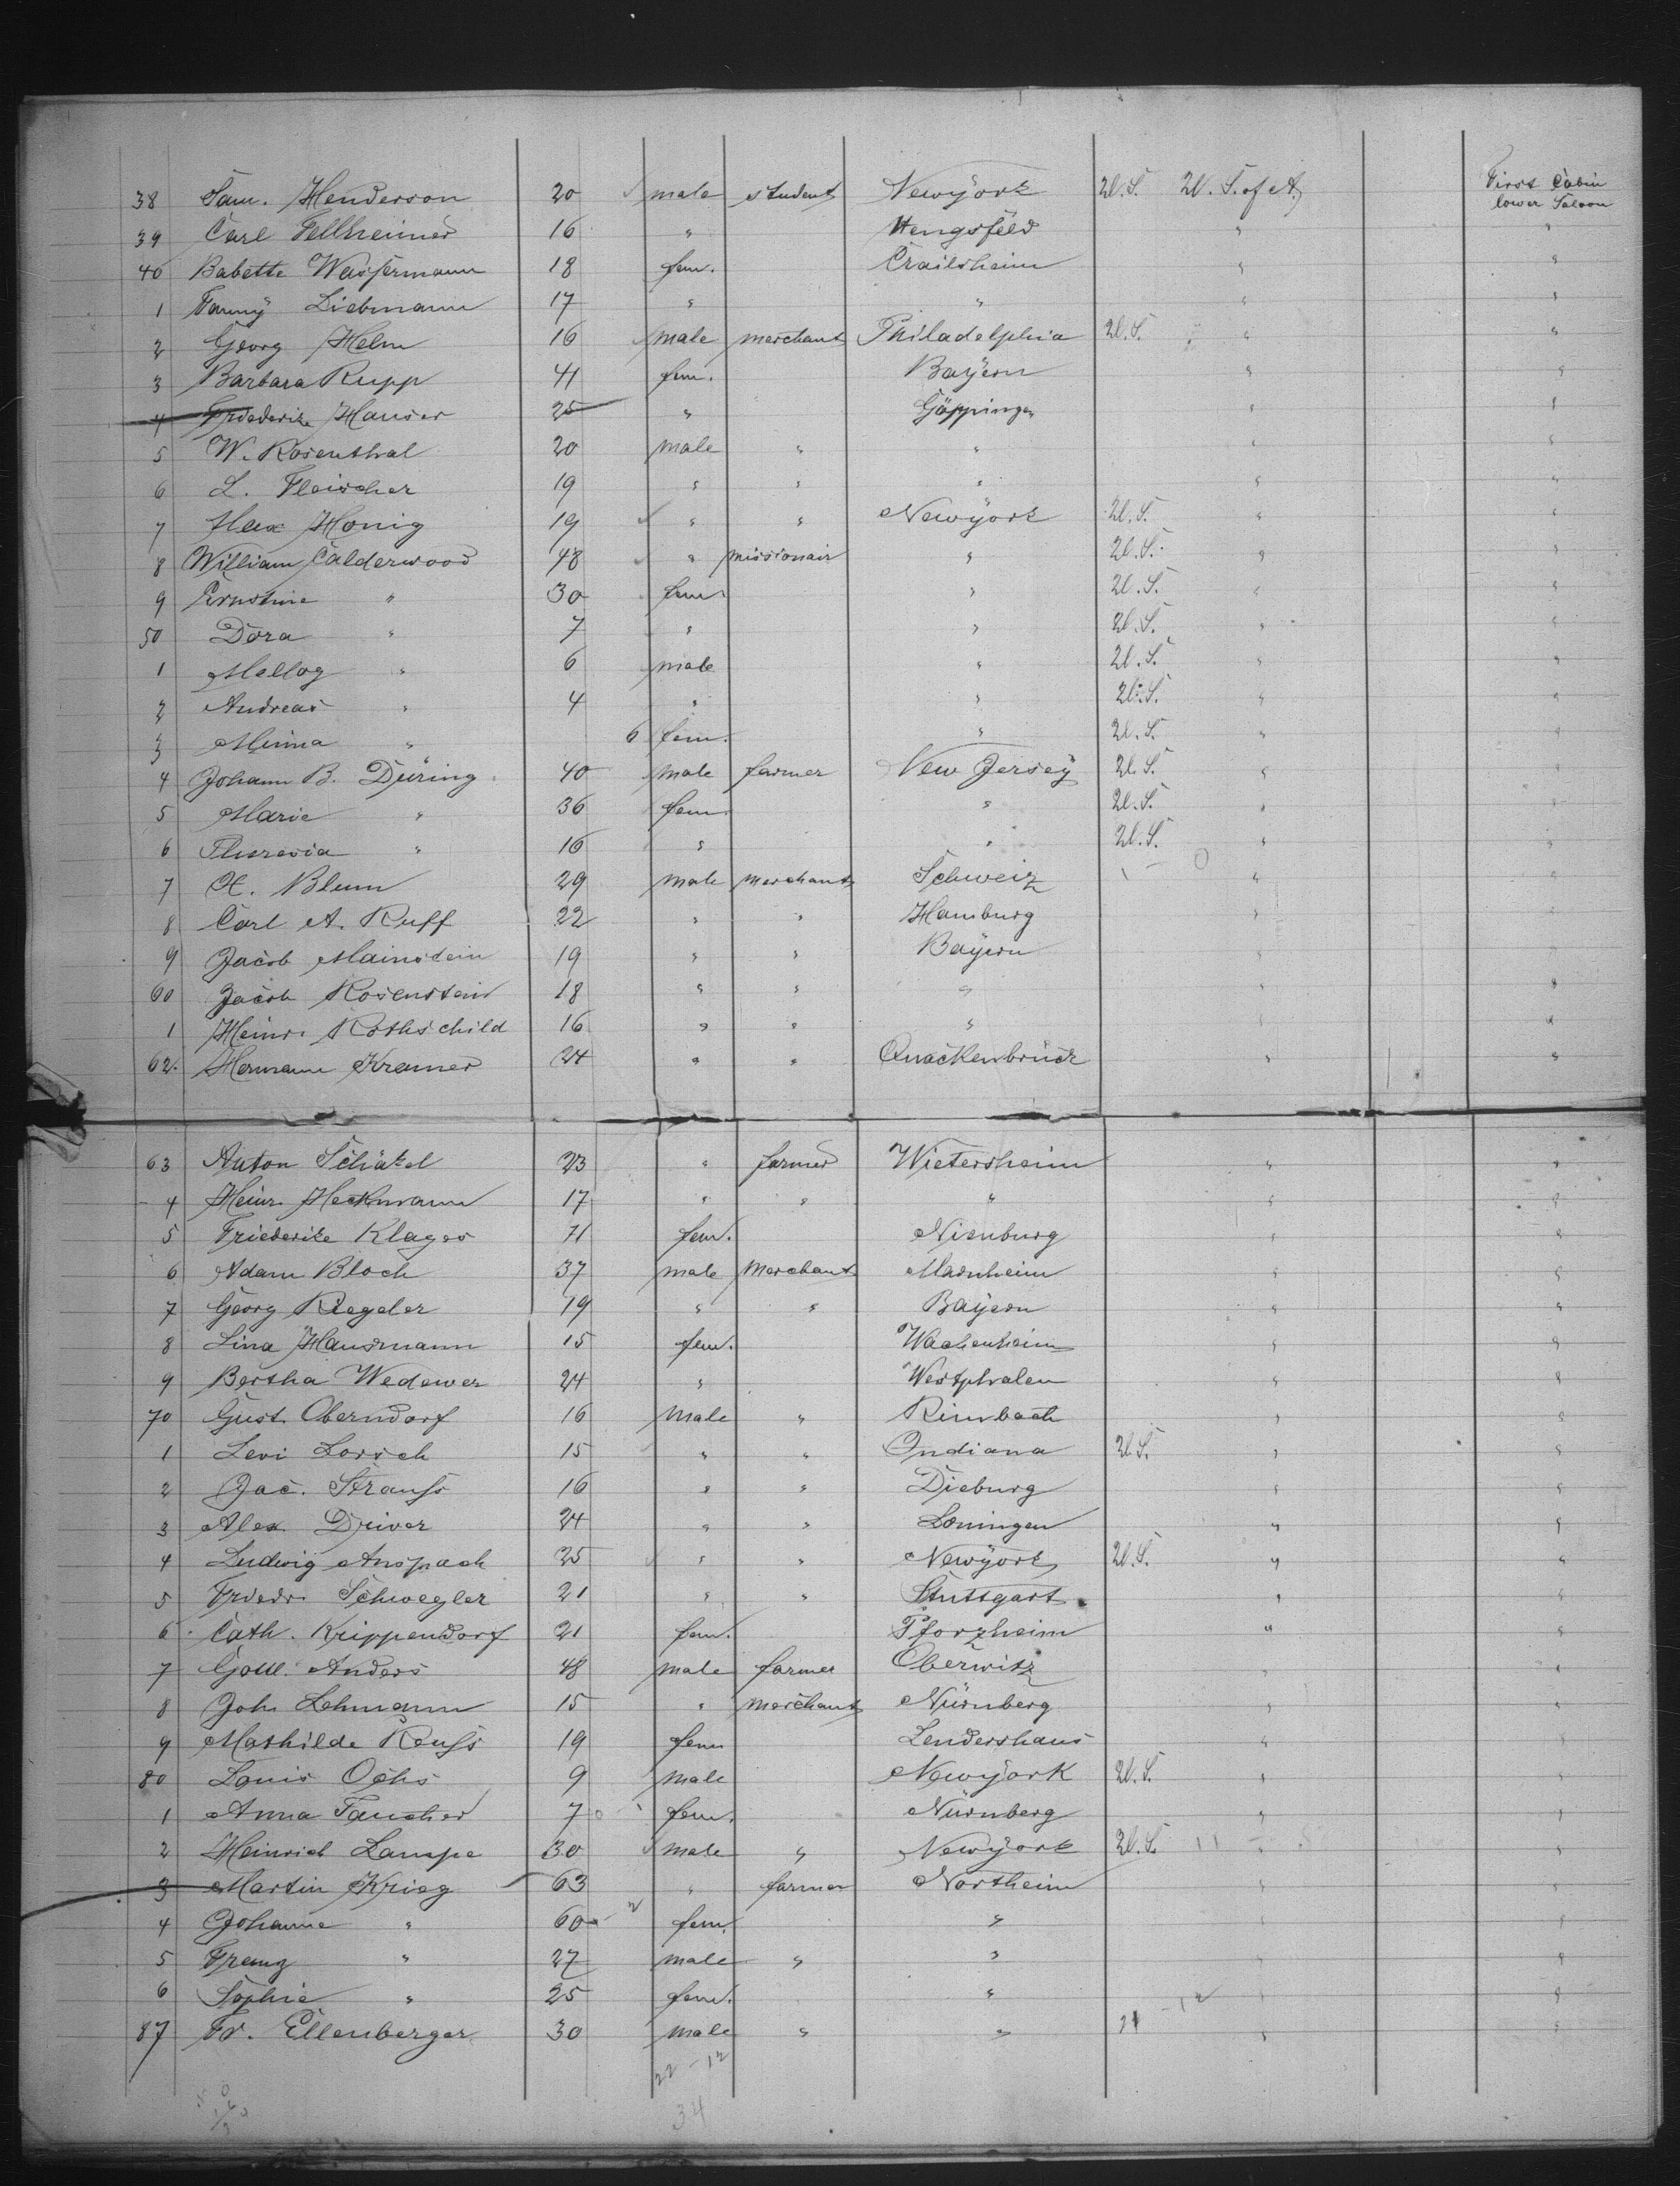 38 Sam. Henderson 20 male student Newyork U.S. U.S. of A. First Cabin lower Saloon
39 Carl Fellheimer 16 " Hengsfeld " "
40 Babette Wassermann 18 fem. Crailsheim " "
1 Fanny Liebmann 17 " " " "
2 Georg Helm 16 male merchant Philadelphia U.S. " "
3 Barbara Rupp 41 fem. Bayern " "
4 Friederike Hauser 25 " Göppingen " "
5 W. Rosenthal 20 male " " " "
6 L. Fleischer 19 " " " " "
7 Max Honig 19 " " Newyork U.S. " "
8 William Calderwood 48 " missionair " U.S. " "
9 Ernstine " 30 fem. " U.S. " "
50 Dora " 7 " " U.S. " "
1 Mellog " 6 male " U.S. " "
2 Andreas " 4 " " U.S. " "
3 Minna " 6 fem. " U.S. " "
4 Johann B. Düring 40 male farmer New Jersey U.S. " "
5 Marie " 36 fem. " U.S. " "
6 Theresia " 16 " " U.S. " "
7 H. Blum 29 male merchant Schweiz " "
8 Carl A. Ruff 22 " " Hamburg " "
9 Jacob Mainstein 19 " " Bayern " "
60 Jacob Rosenstein 18 " " " " "
1 Heinr. Rothschild 16 " " " " "
62. Hermann Kramer 24 " " Quackenbrück " "
63 Anton Schätzel 23 " farmer Wietersheim " "
4 Heinr. Heckmann 17 " " " " "
5 Friederike Klages 71 fem. Nienburg " "
6 Adam Bloch 37 male Merchant Mannheim " "
7 Georg Riegeler 19 " " Bayern " "
8 Lina Hausmann 15 fem. Wachenheim " "
9 Bertha Wedewer 24 " Westphalen " "
70 Gust. Oberndorf 16 male " Rimbach " "
1 Levi Lorsch 15 " " Indiana U.S. " "
2 Jac. Strauß 16 " " Dieburg " "
3 Alex Driver 24 " " Loningen " "
4 Ludwig Anspach 25 " " Newyork U.S. " "
5 Friedr. Schwegler 21 " " Stuttgart " "
6 Cath. Krippendorf 21 fem. Pforzheim " "
7 Gottl. Anders 48 male farmer Oberwitz " "
8 Joh. Lehmann 15 " merchant Nürnberg " "
9 Mathilde Reuß 19 fem Lendershaus " "
80 Louis Ochs 9 male Newyork U.S. " "
1 Anna Faucher 7 fem. Nürnberg " "
2 Heinrich Lampe 30 male " Newyork U.S. " "
3 Martin Krieg 63 " farmer Northeim " "
4 Johanne " 60 fem. " " "
5 Franz " 27 male " " " "
6 Sophie " 25 fem. " " "
87 Fr. Ellenberger 30 male " " " "
22 - 12
34